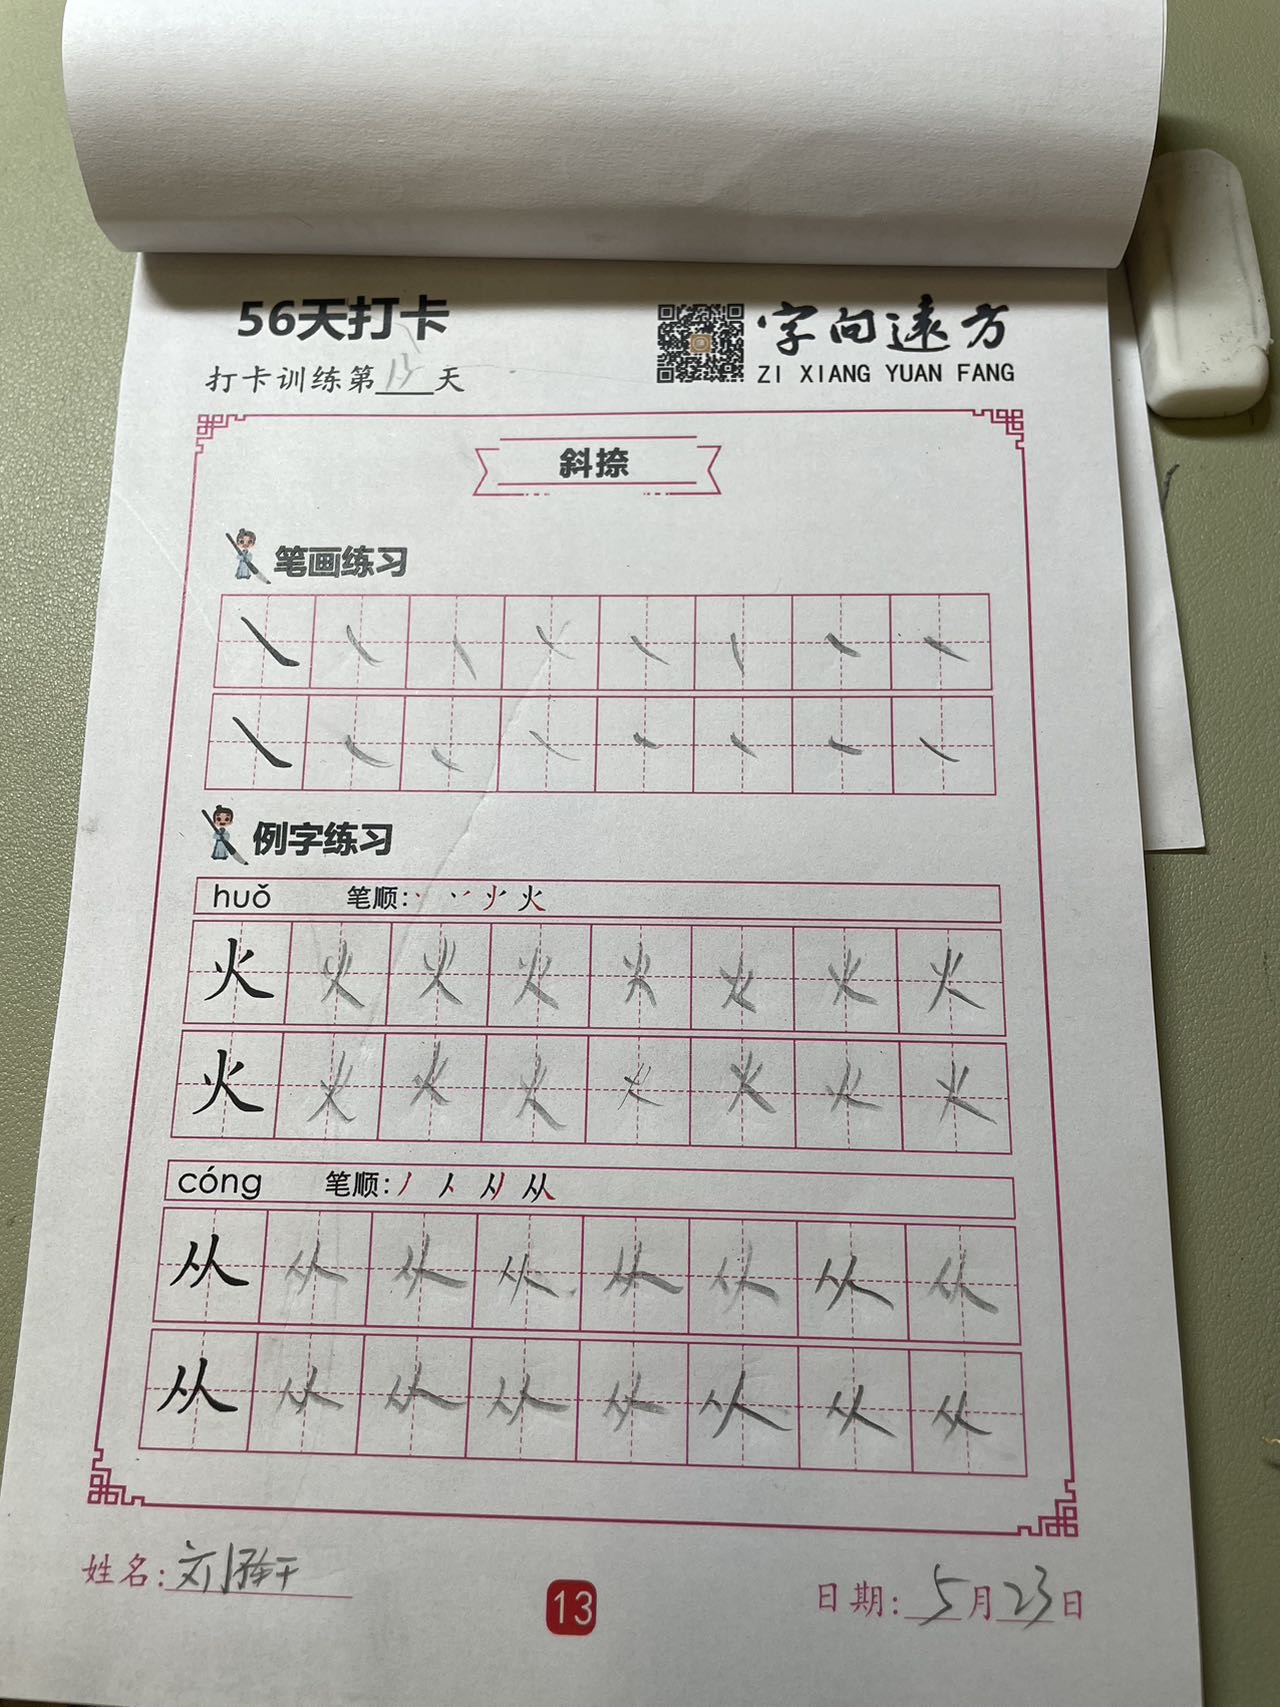 56天打卡
字向远方
ZI XIANG YUAN FANG
打卡训练第13天
斜捺
笔画练习
例字练习
huǒ 笔顺:
火 火 火 火 火 火 火 火
火 火 火 火 火 火 火 火
cóng 笔顺:
从 从 从 从 从 从 从 从
从 从 从 从 从 从 从 从
姓名:刘
13
日期:5月23日